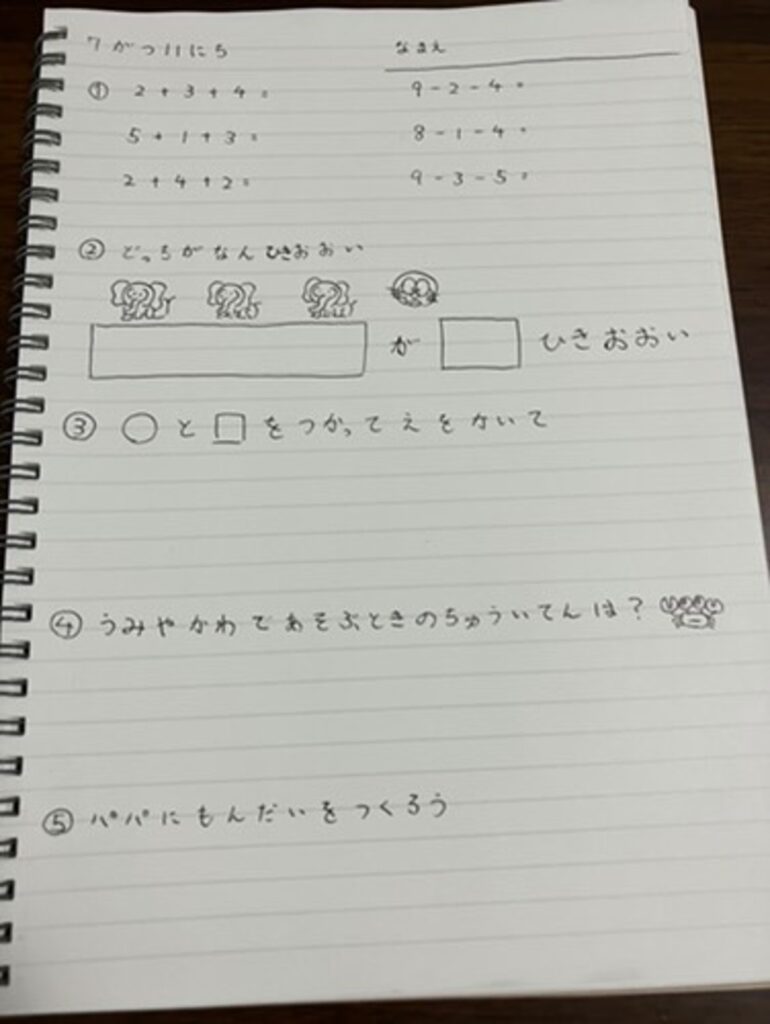 7がつ11にち なまえ
① 2+3+4= 9-2-4=
5+1+3= 8-1-4=
2+4+2= 9-3-5=
② どっちがなんひきおおい
が ひきおおい
③ ○と□をつかってえをかいて
④ うみやかわであそぶときのちゅういてんは?
⑤ パパにもんだいをつくろう